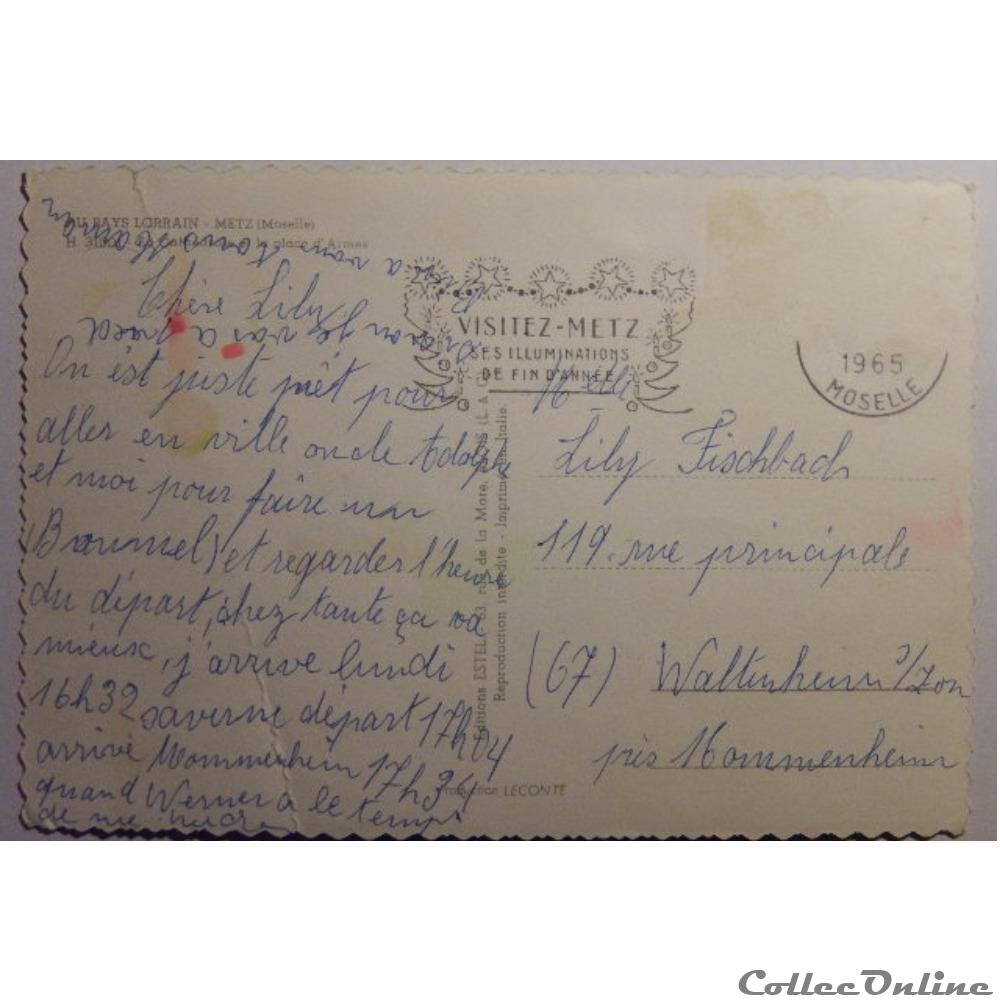 AU PAYS LORRAIN - METZ (Moselle)
la place d'Armes
a vous tous Maman
Chère Lily,
On ést juste prêt pour
aller en ville oncle Adolphe
et moi pour faire un
Bummel et regarder l'heure
du départ, chez tante ça va
mieux, j'arrive lundi
16h32 saverne départ 17h04
arrivé Mommenheim 17h34
quand Werner a le temps
de me
Editions ESTEL, 63, rue de la Mare, PARIS
Reproduction interdite - Imprimé en Italie.
Production LECONTE
VISITEZ-METZ
SES ILLUMINATIONS
DE FIN D'ANNÉE
1965
MOSELLE
Melle
Lily Fischbach
119. rue principale
(67) Waltenheim s/Zorn
près Mommenheim
CollecOnline